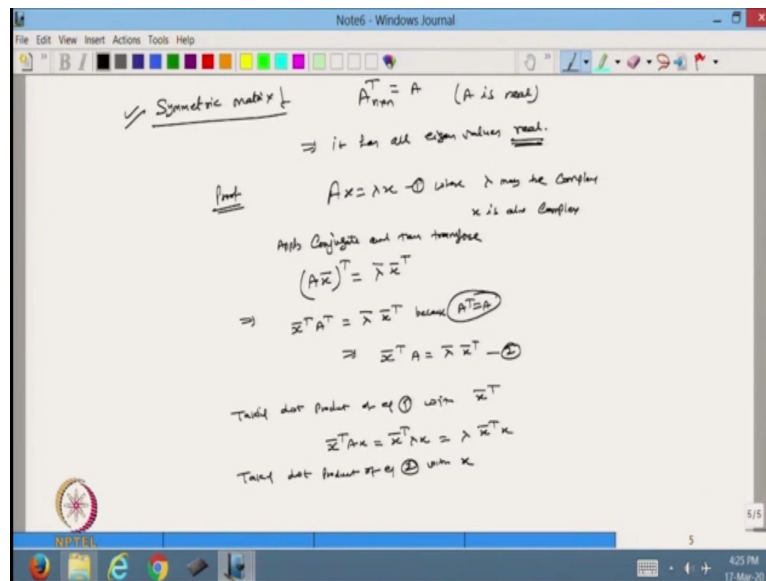 Note6 - Windows Journal
File Edit View Insert Actions Tools Help
Symmetric matrix A^T_{n×n} = A (A is real)
⇒ it has all eigen values real.
Proof Ax = λx — ① where λ may be Complex
x is also Complex
Apply Conjugate and then transpose
(A x̄)^T = λ̄ x̄^T
⇒ x̄^T A^T = λ̄ x̄^T because A^T = A
⇒ x̄^T A = λ̄ x̄^T — ②
Taking dot Product of eq ① with x̄^T
x̄^T A x = x̄^T λ x = λ x̄^T x
Taking dot Product of eq ② with x
NPTEL
5/5
5
4:25 PM
17-Mar-20